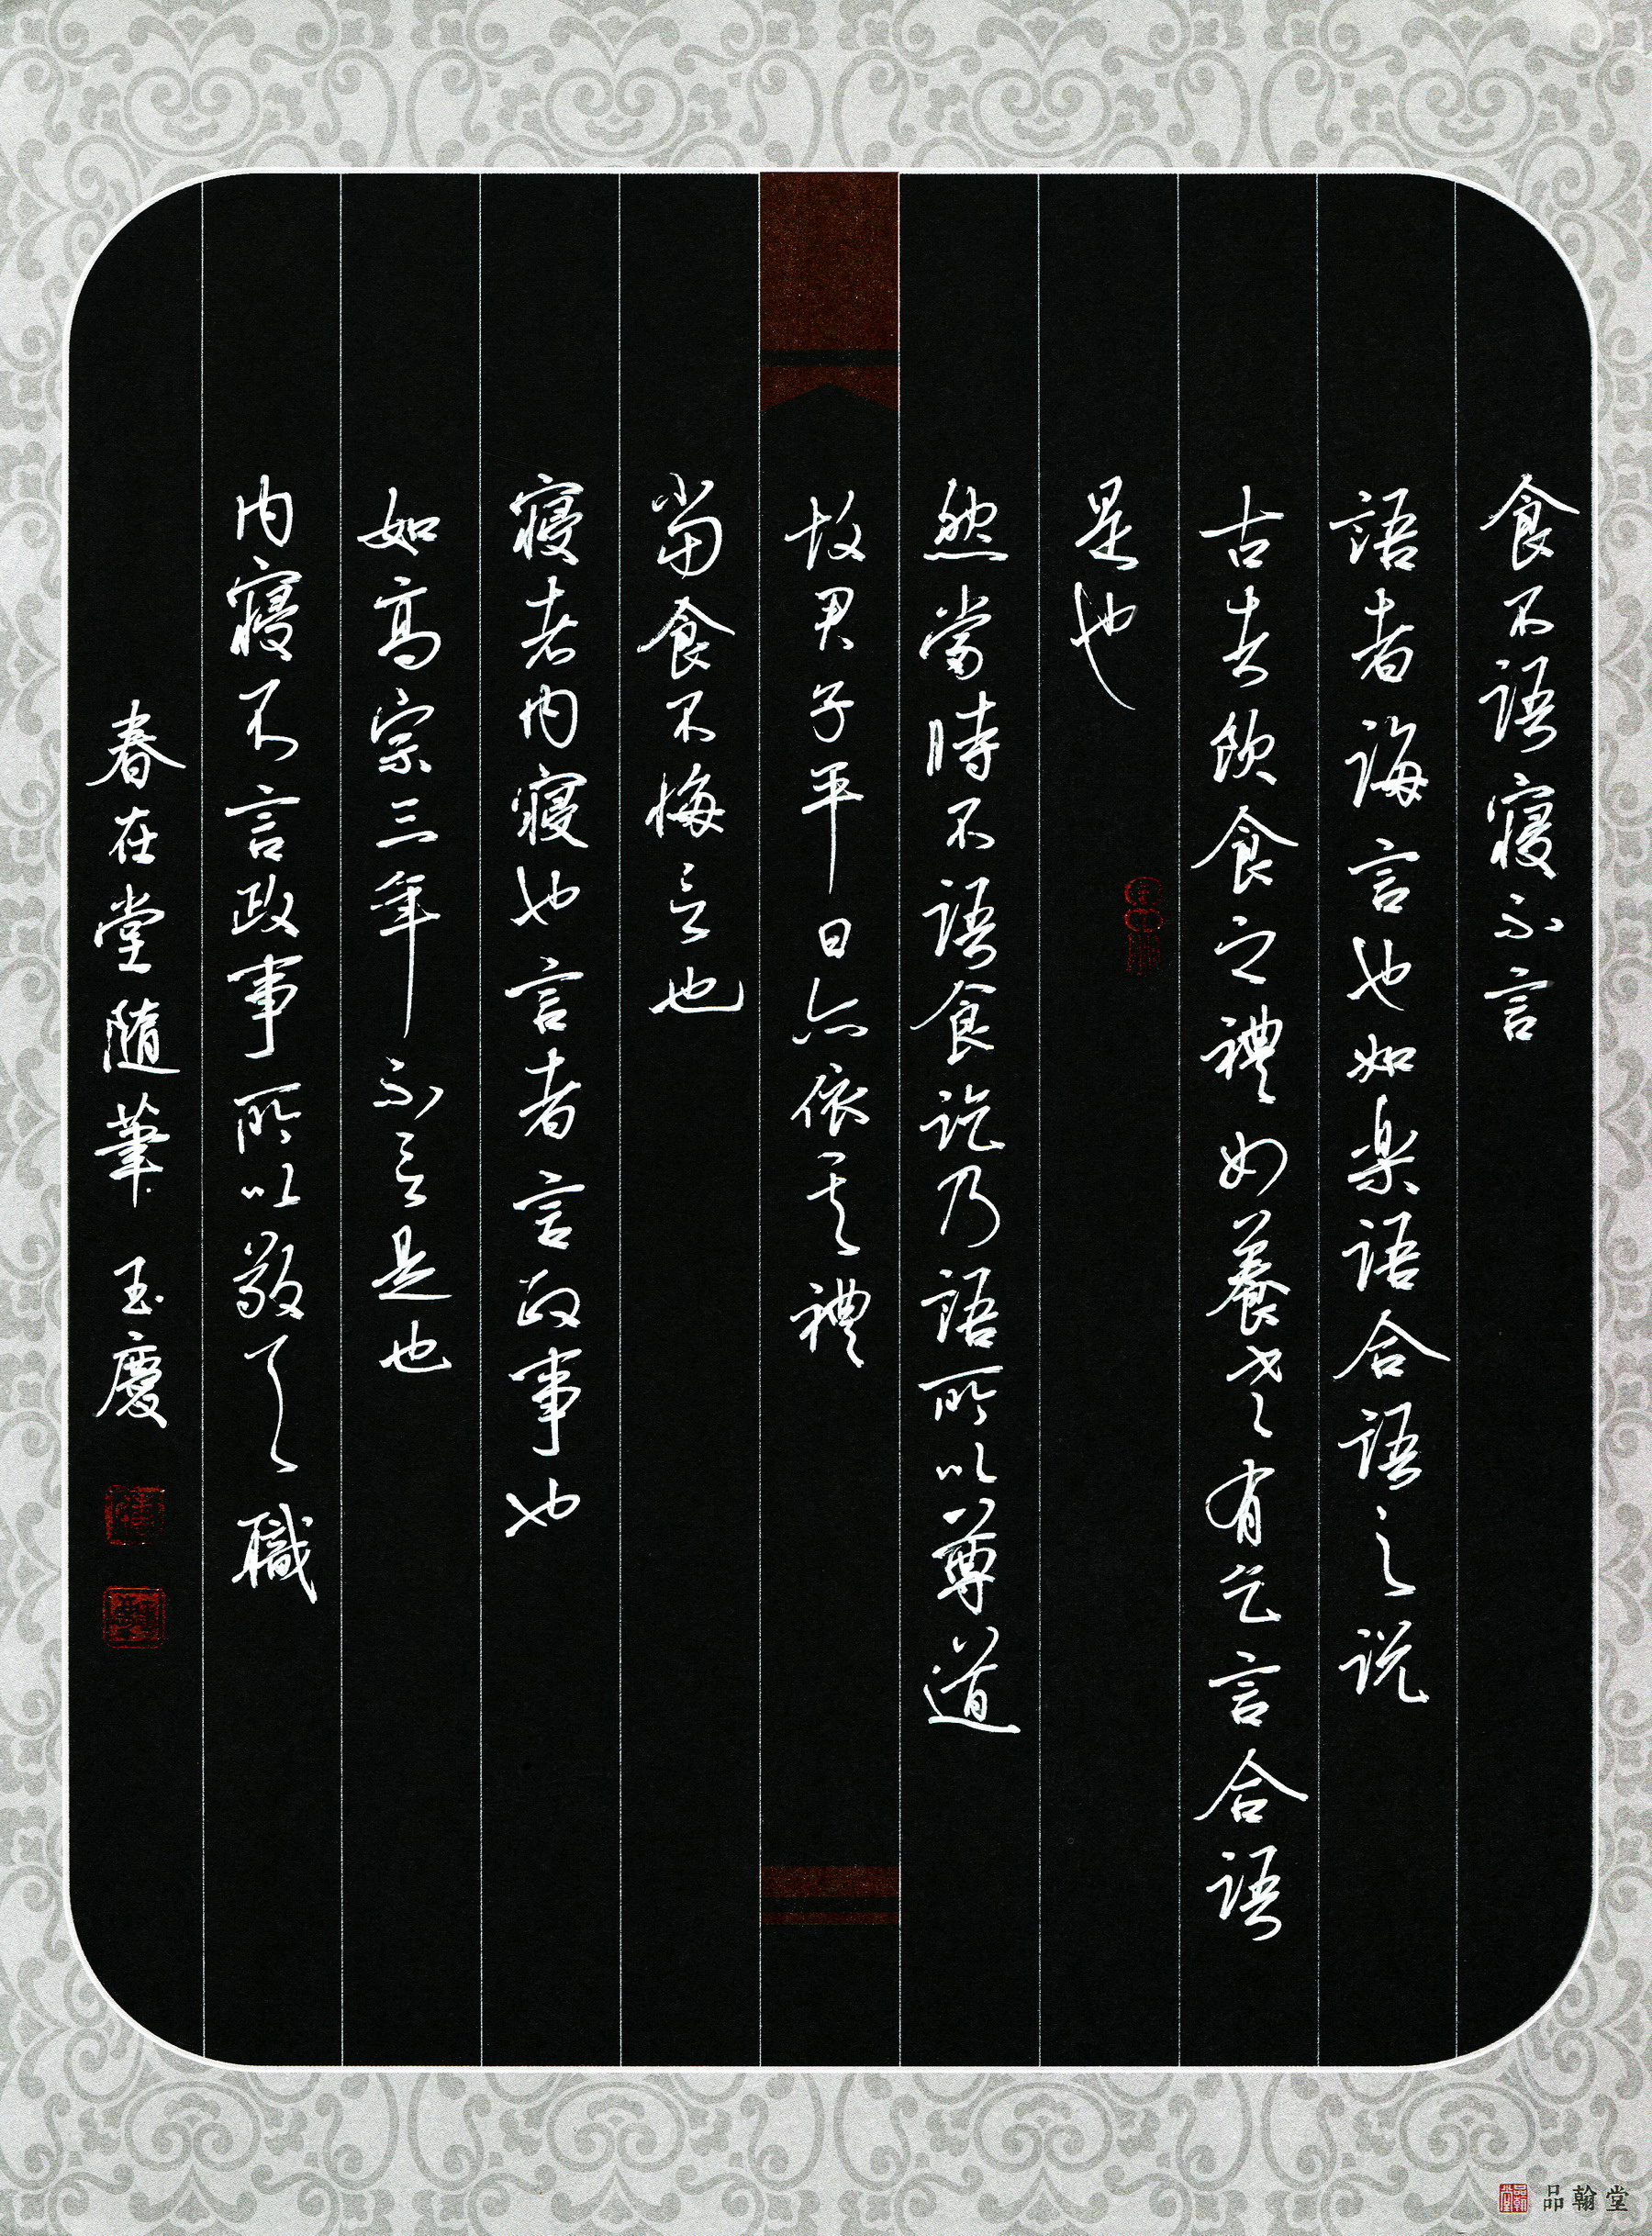 食不語寢不言
語者誨言也如樂語合語之說
古者飲食之禮如養老有乞言合語
是也
然當時不語食訖乃語所以尊道
故君子平日亦依其禮
當食不悔言也
寢者內寢也言者言政事也
如高宗三年不言是也
內寢不言政事所以敬其職
春在堂隨筆 玉慶
品翰堂